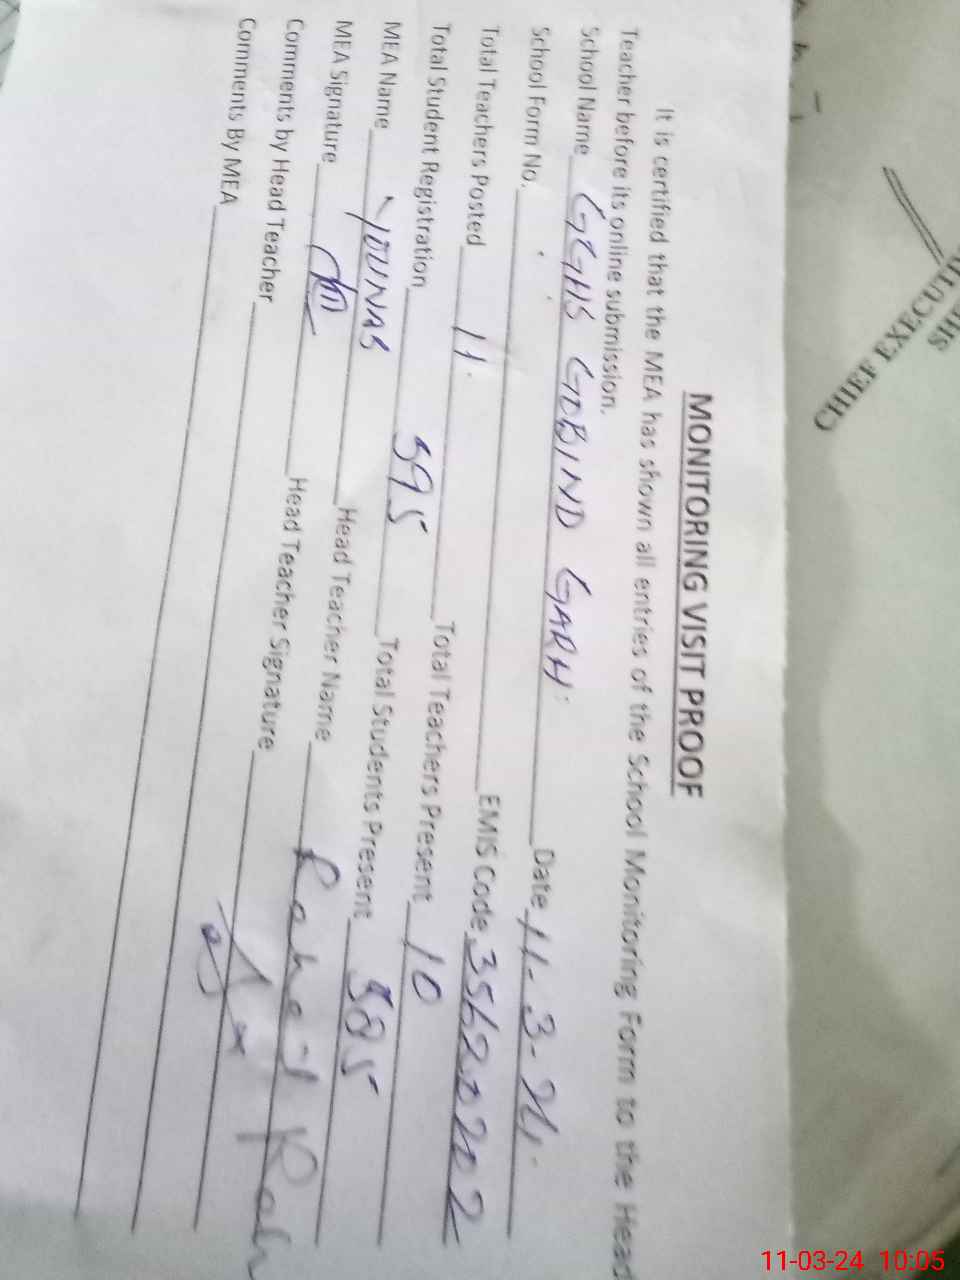 CHIEF EXECUTI
SHE
MONITORING VISIT PROOF
It is certified that the MEA has shown all entries of the School Monitoring Form to the Head
Teacher before its online submission.
School Name GGHS GOBIND GARH. Date 11-3-24.
School Form No. EMIS Code 35620202
Total Teachers Posted 11. Total Teachers Present 10
Total Student Registration 395 Total Students Present 385
MEA Name YOUNAS Head Teacher Name Raheel
MEA Signature Head Teacher Signature
Comments by Head Teacher
Comments By MEA
11-03-24 10:05